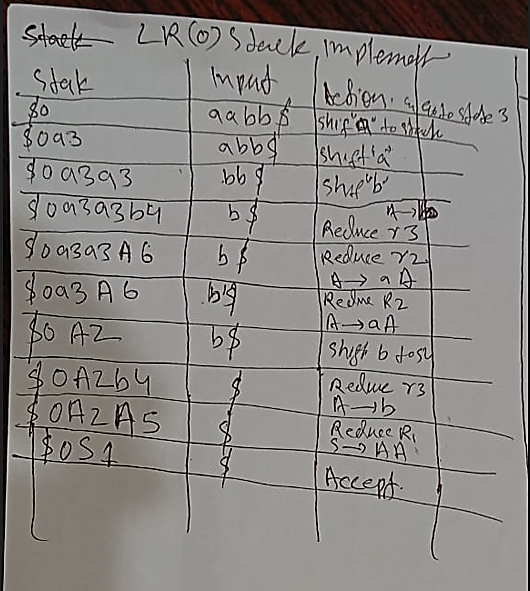 LR(0) Stack Implement
Stak Input Action.
$0 aabb$ shift "a" to stack & goto state 3
$0a3 abb$ shift "a"
$0a3a3 bb$ shift "b"
$0a3a3b4 b$ Reduce r3 A→
$0a3a3A6 b$ Reduce r2 A→aA
$0a3A6 b$ Reduce R2 A→aA
$0A2 b$ shift b to s4
$0A2b4 $ Reduce r3 A→b
$0A2A5 $ Reduce R1 S→AA
$0S1 $ Accept.